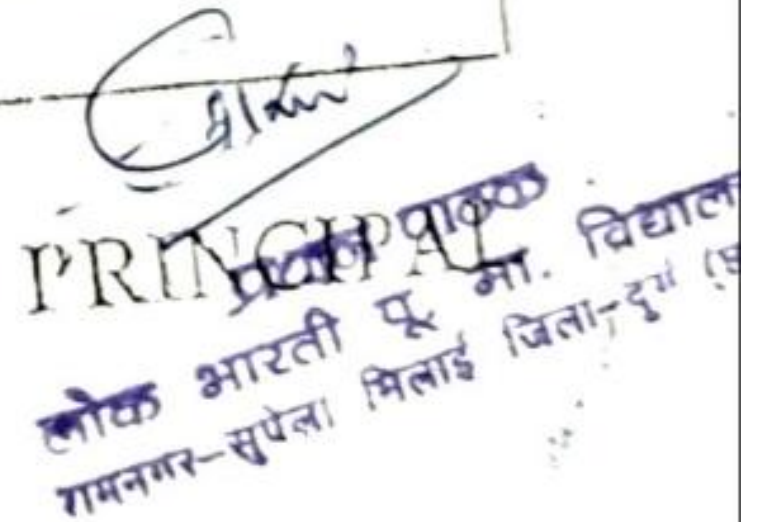 PRINCIPAL
प्रधान पाठक
लोक भारती पू. मा. विद्यालय
रामनगर-सुपेला भिलाई जिला-दुर्ग